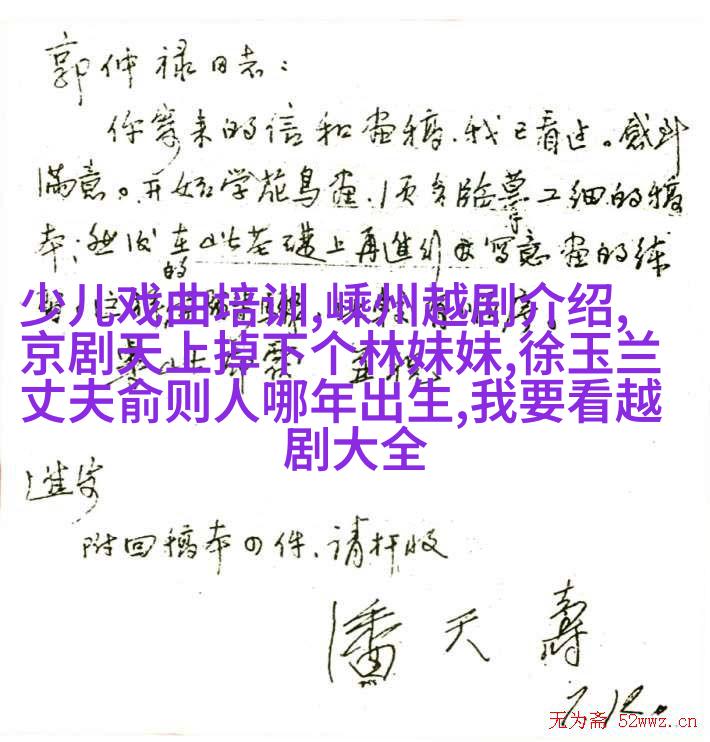 郭仲禄同志：
你寄来的信和画稿，我已看过。感到
满意。开始学花鸟画，须多临摹工细的稿
本；然后在此基础上再进行写意画的练
的
少儿戏曲培训,嵊州越剧介绍,
京剧天上掉下个林妹妹,徐玉兰
丈夫俞则人哪年出生,我要看越
剧大全
附回稿本四件，请检收
潘天寿
7.12.
无为斋 52wwz.cn